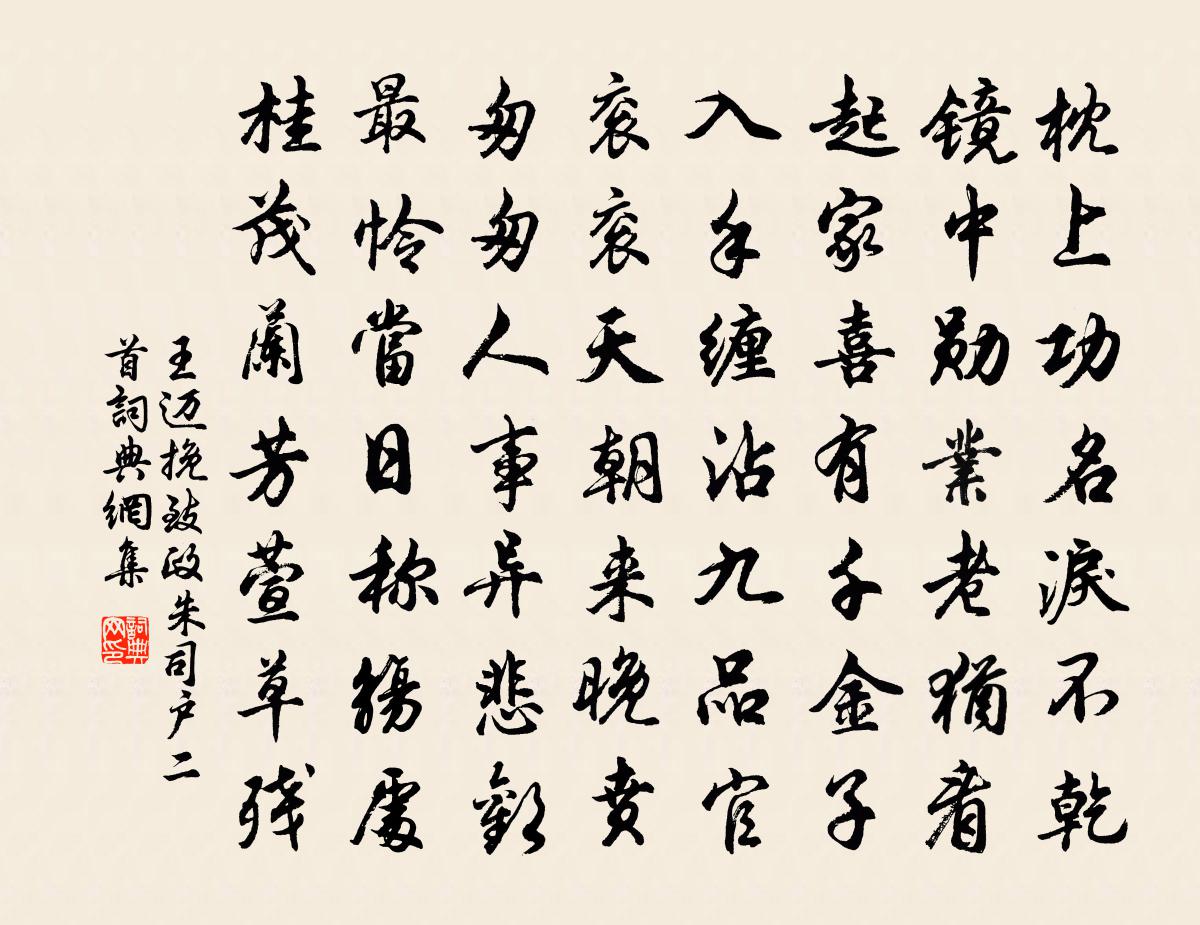 枕上功名淚不乾
鏡中勛業老猶看
起家喜有千金子
入手纏沾九品官
衮衮天朝来晚賁
匆匆人事异悲歡
最憐當日称觴處
桂茂蘭芳萱草残
王迈挽致政朱司户二
首詞典網集
詞典网印